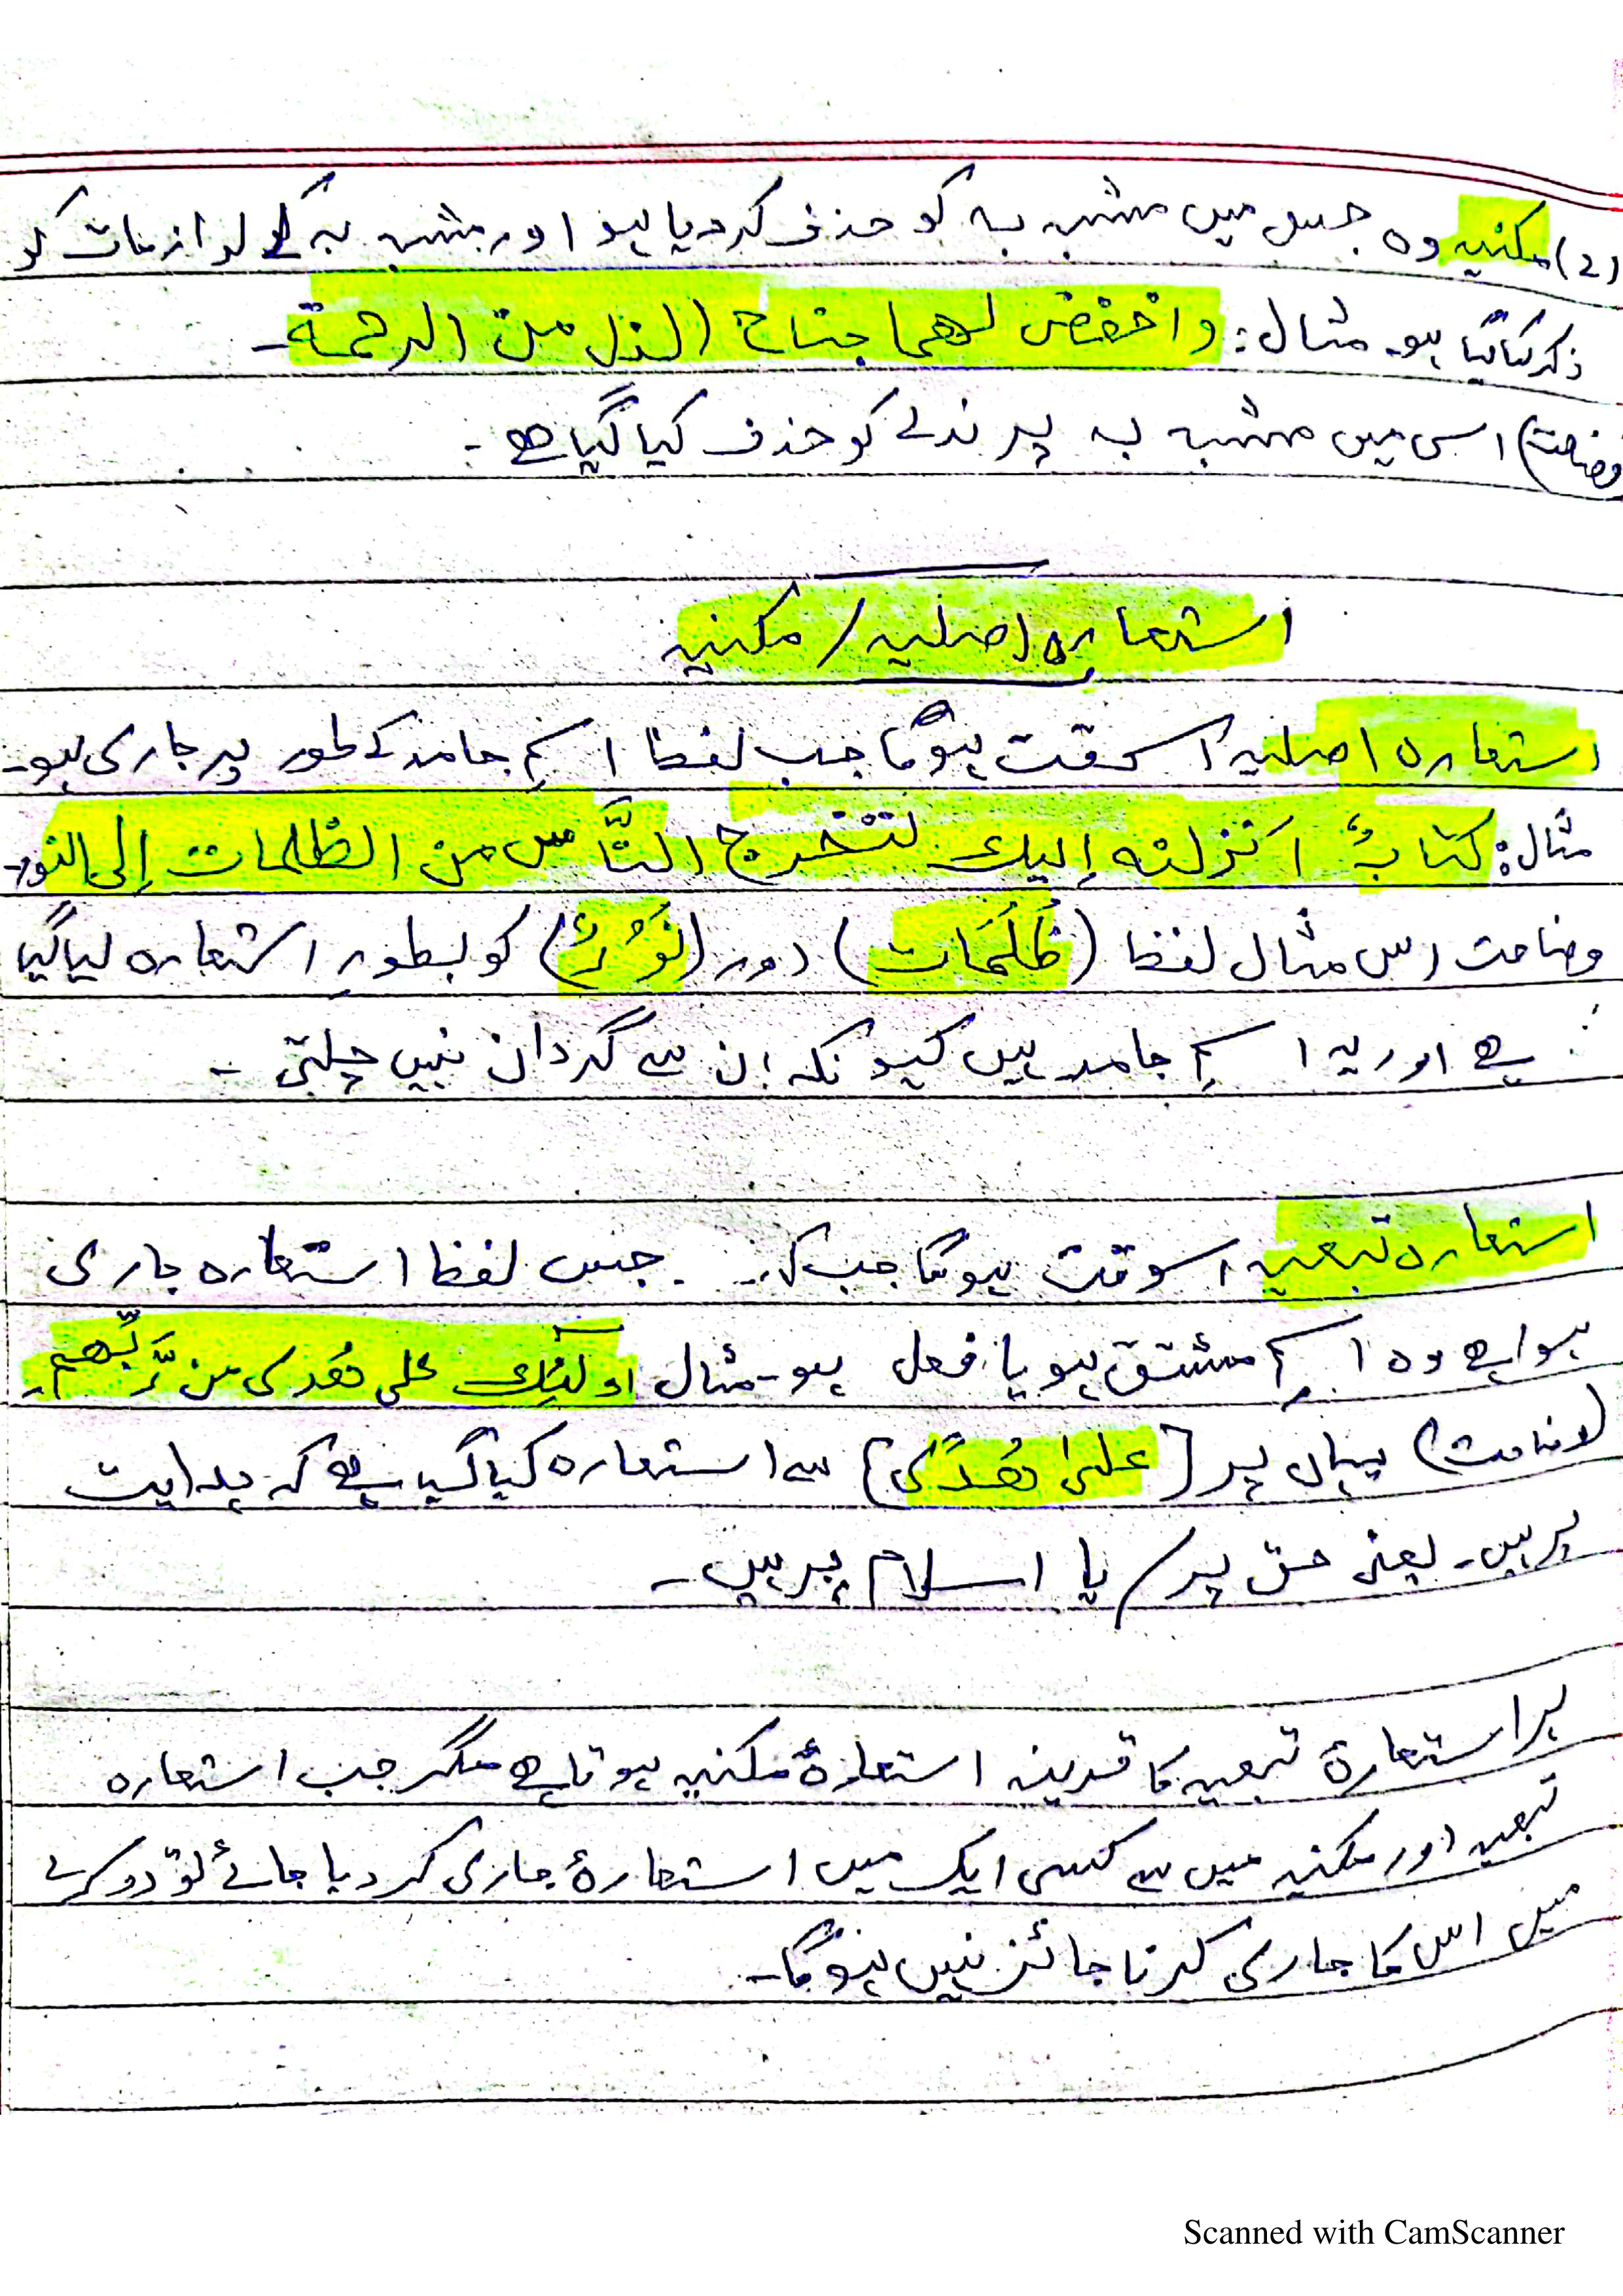 (2) مکنیہ وہ جس میں مشبہ بہ کو حذف کردیا ہو اور مشبہ بہ کے لوازمات کو
ذکر کیا گیا ہو۔ مثال: واخفض لهما جناح الذل من الرحمة۔
وضاحت) اس میں مشبہ بہ پرندے کو حذف کیا گیا ہے۔
استعارہ اصلیہ / مکنیہ
استعارہ اصلیہ اسوقت ہوگا جب لفظ اسمِ جامد کے طور پر جاری ہو۔
مثال: كتابٌ انزلنه إليك لتخرج النَّاس من الظلمات إلى النور۔
وضاحت اس مثال لفظ (ظُلُمَات) اور (نُوْرٌ) کو بطورِ استعارہ لیا گیا
ہے اور یہ اسمِ جامد ہیں کیونکہ ان سے گردان نہیں چلتی۔
استعارہ تبعیہ اسوقت ہوگا جب کہ جس لفظ استعارہ جاری
ہوا ہے وہ اسمِ مشتق ہو یا فعل ہو۔ مثال اولٓئِك على هُدى من رَّبِّهم۔
(وضاحت) یہاں پر [علىٰ هُدًى] سے استعارہ کیا گیا ہے کہ ہدایت
پر ہیں۔ یعنی حق پر / یا اسلام پر ہیں۔
ہر استعارۂ تبعیہ کا قرینہ استعارۂ مکنیہ ہوتا ہے مگر جب استعارہ
تبعیہ اور مکنیہ میں سے کسی ایک میں استعارۂ جاری کر دیا جائے تو دوسرے
میں اس کا جاری کرنا جائز نہیں ہوگا۔
Scanned with CamScanner